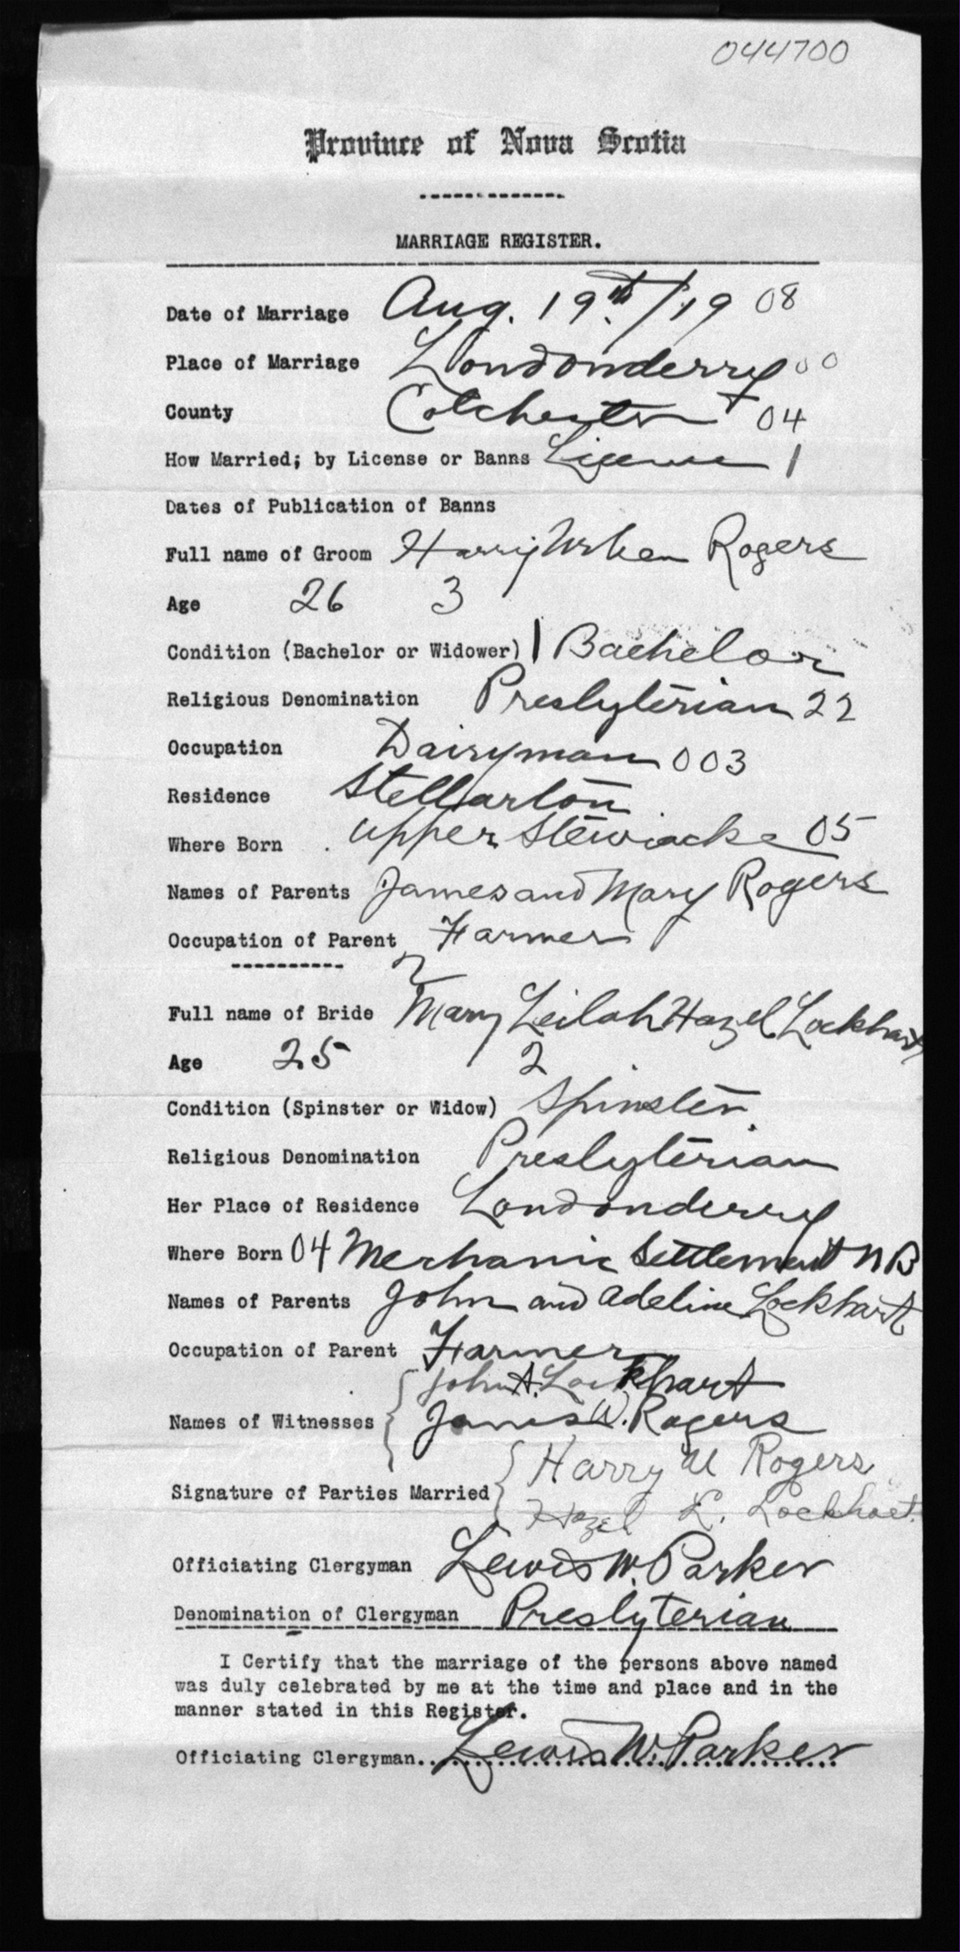 044700
Province of Nova Scotia
MARRIAGE REGISTER.
Date of Marriage Aug. 19th/19 08
Place of Marriage Londonderry 00
County Colchester 04
How Married; by License or Banns License 1
Dates of Publication of Banns
Full name of Groom Harry Rogers
Age 26 3
Condition (Bachelor or Widower) 1 Bachelor
Religious Denomination Presbyterian 22
Occupation Dairyman 003
Residence Stellarton
Where Born Upper Stewiacke 05
Names of Parents James and Mary Rogers
Occupation of Parent Farmer
2
Full name of Bride Mary Leilah Hazel Lockhart
Age 25 2
Condition (Spinster or Widow) Spinster
Religious Denomination Presbyterian
Her Place of Residence Londonderry
Where Born 04 Mechanic Settlement NB
Names of Parents John and Adeline Lockhart
Occupation of Parent Farmer
John A. Lockhart
Names of Witnesses James W. Rogers
Harry U Rogers
Signature of Parties Married
Hazel L. Lockhart.
Officiating Clergyman Lewis W. Parker
Denomination of Clergyman Presbyterian
I Certify that the marriage of the persons above named
was duly celebrated by me at the time and place and in the
manner stated in this Register.
Officiating Clergyman.. Lewis W. Parker